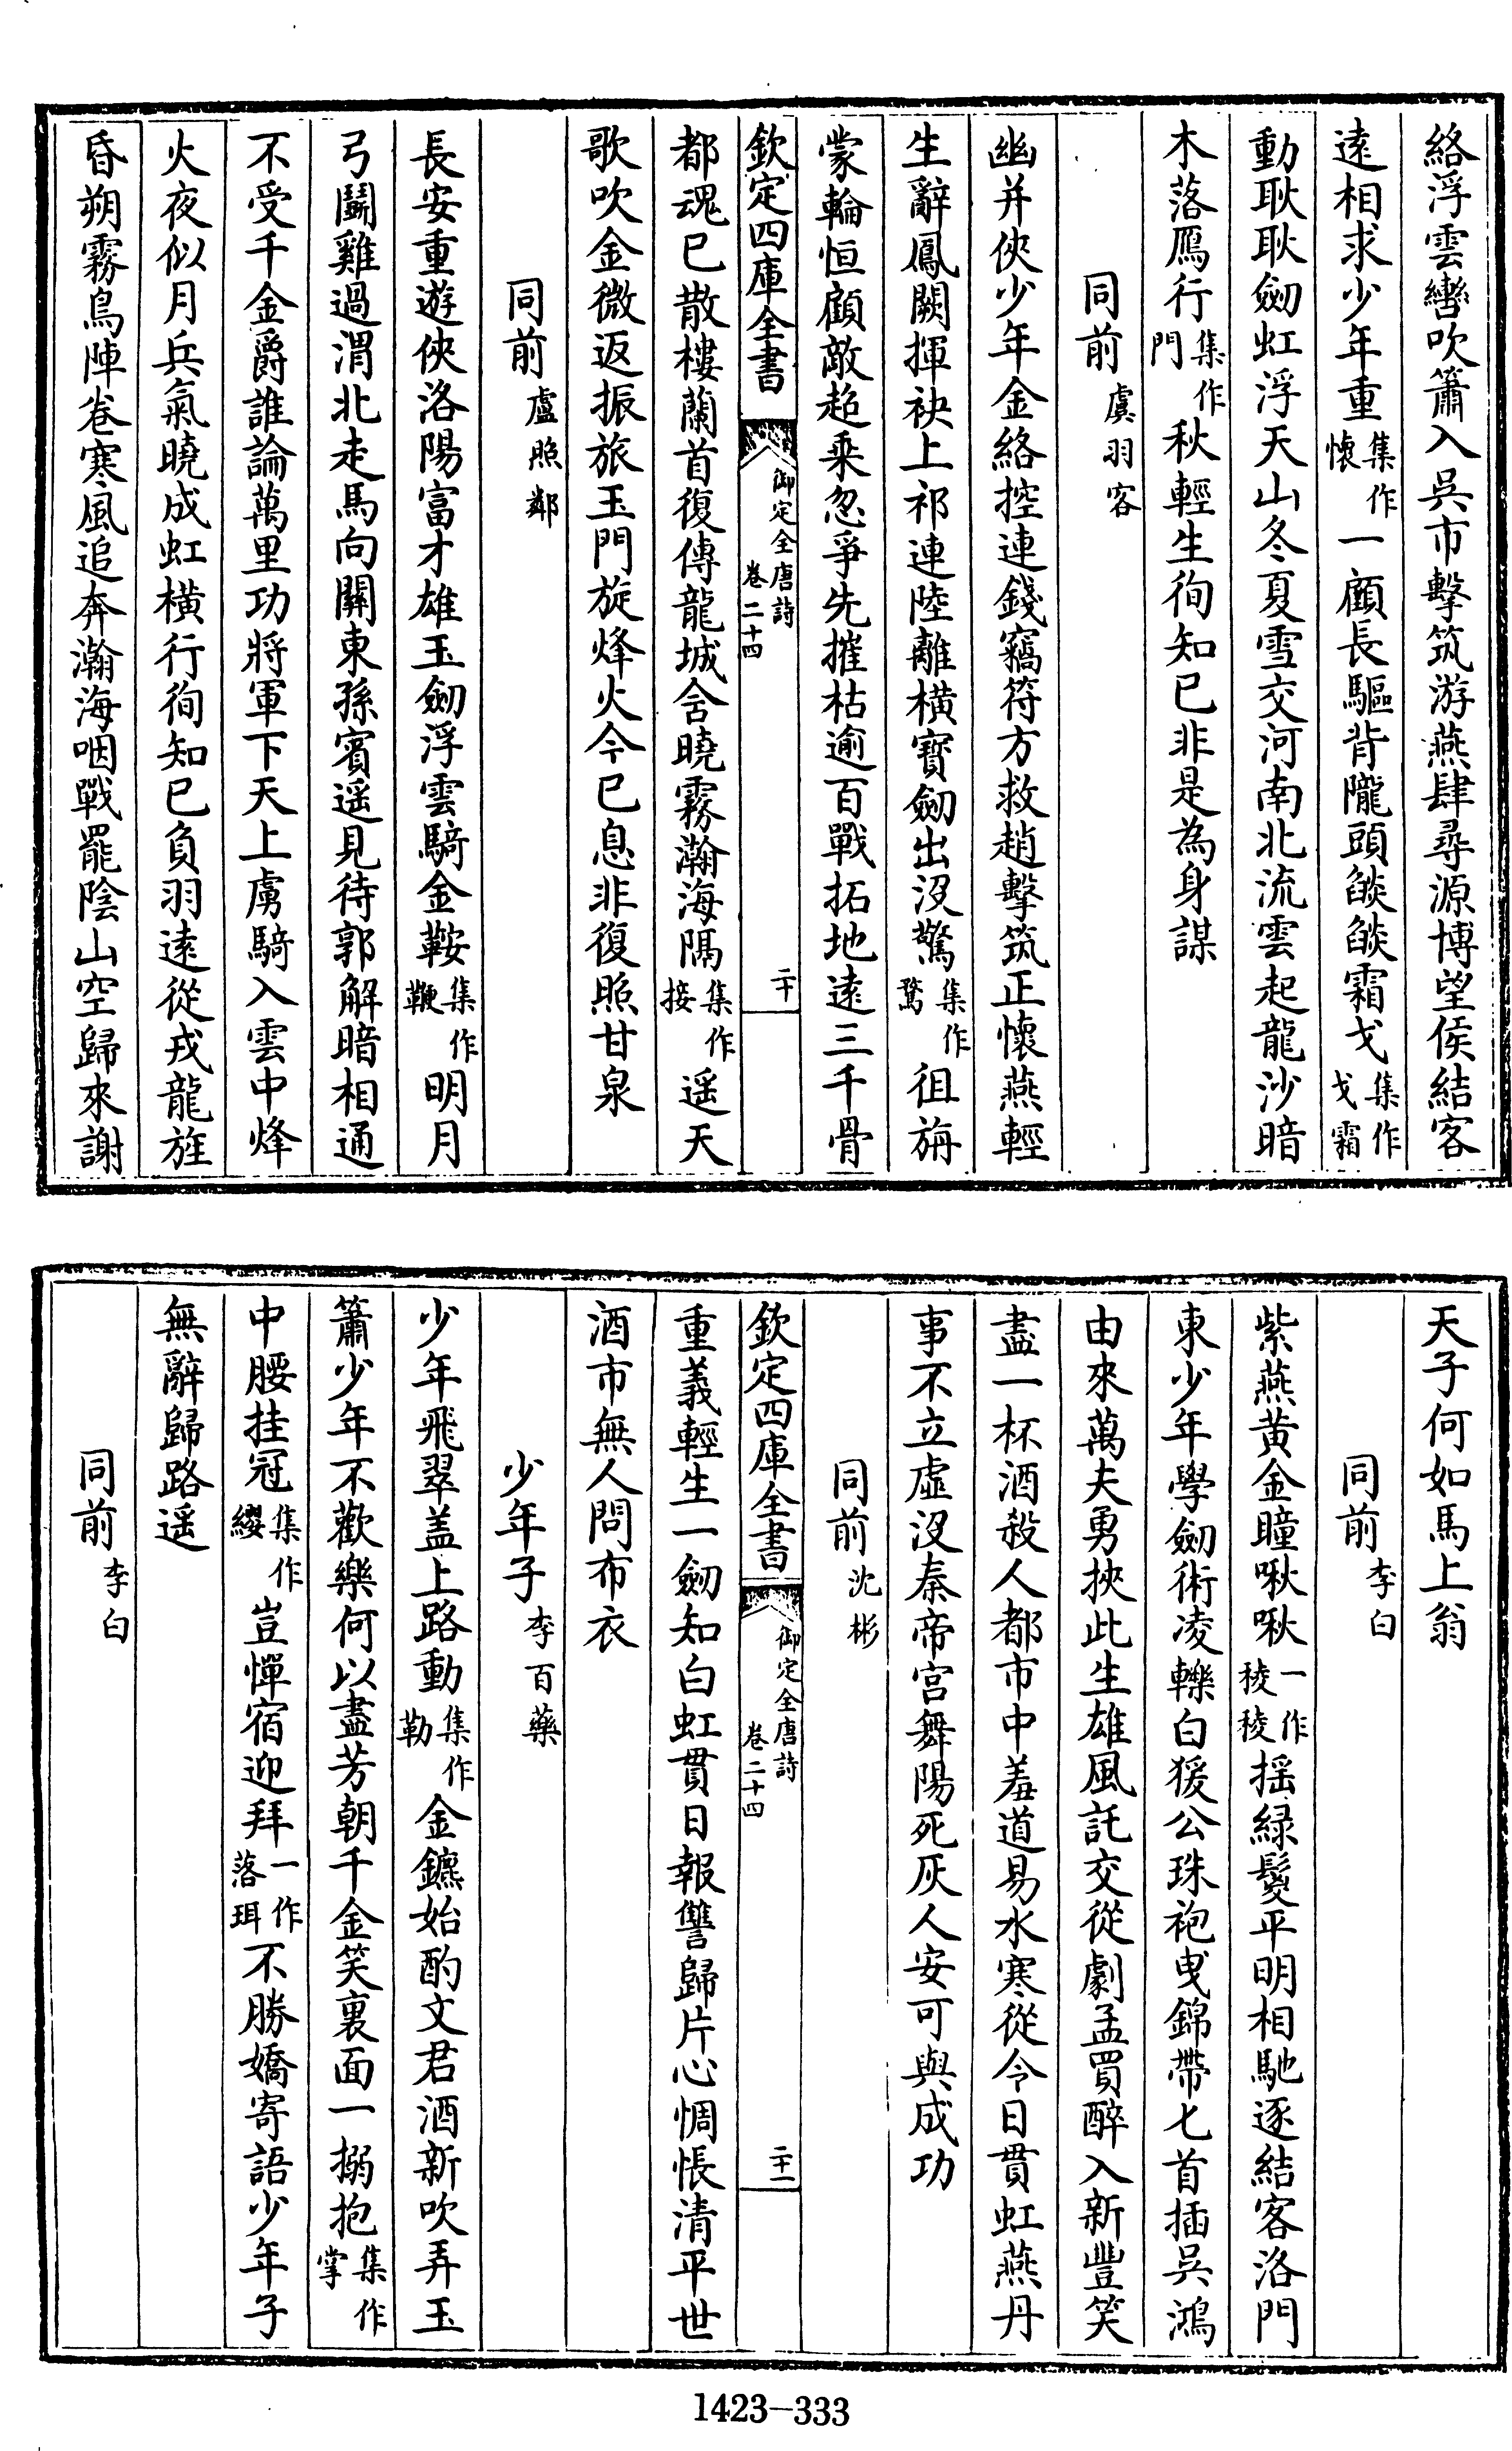 絡浮雲轡吹簫入吳市擊筑游燕肆尋源博望侯結客
遠相求少年重集作懷一顧長驅背隴頭燄燄霜戈集作戈霜
動耿耿劒虹浮天山冬夏雪交河南北流雲起龍沙暗
木落鴈行集作門秋輕生徇知已非是為身謀
同前虞羽客
幽并俠少年金絡控連錢竊符方救趙擊筑正懷燕輕
生辭鳳闕揮袂上祁連陸離橫寶劒出沒驚集作騖徂旃
蒙輪恒顧敵超乗忽爭先摧枯逾百戰拓地遠三千骨
欽定四庫全書
御定全唐詩
卷二十四
二十
都魂已散樓蘭首復傳龍城含曉霧瀚海隔集作接遥天
歌吹金微返振旅玉門旋烽火今已息非復照甘泉
同前盧照鄰
長安重遊俠洛陽富才雄玉劒浮雲騎金鞍集作鞭明月
弓鬭雞過渭北走馬向關東孫賓遥見待郭解暗相通
不受千金爵誰論萬里功將軍下天上虜騎入雲中烽
火夜似月兵氣曉成虹橫行徇知已負羽遠從戎龍旌
昏朔霧鳥陣卷寒風追奔瀚海咽戰罷陰山空歸來謝
天子何如馬上翁
同前李白
紫燕黃金瞳啾啾一作稜稜揺綠鬉平明相馳逐結客洛門
東少年學劒術凌轢白猨公珠袍曵錦帶七首插吳鴻
由來萬夫勇挾此生雄風託交從劇孟買醉入新豐笑
盡一杯酒殺人都市中羞道易水寒從令日貫虹燕丹
事不立虛沒秦帝宮舞陽死灰人安可與成功
同前沈彬
欽定四庫全書
御定全唐詩
卷二十四
二十一
重義輕生一劒知白虹貫日報讐歸片心惆悵清平世
酒市無人問布衣
少年子李百藥
少年飛翠盖上路動集作勒金鑣始酌文君酒新吹弄玉
簫少年不歡樂何以盡芳朝千金笑裏面一搦抱集作掌
中腰挂冠集作纓豈憚宿迎拜一作落珥不勝嬌寄語少年子
無辭歸路遥
同前李白
1423-333